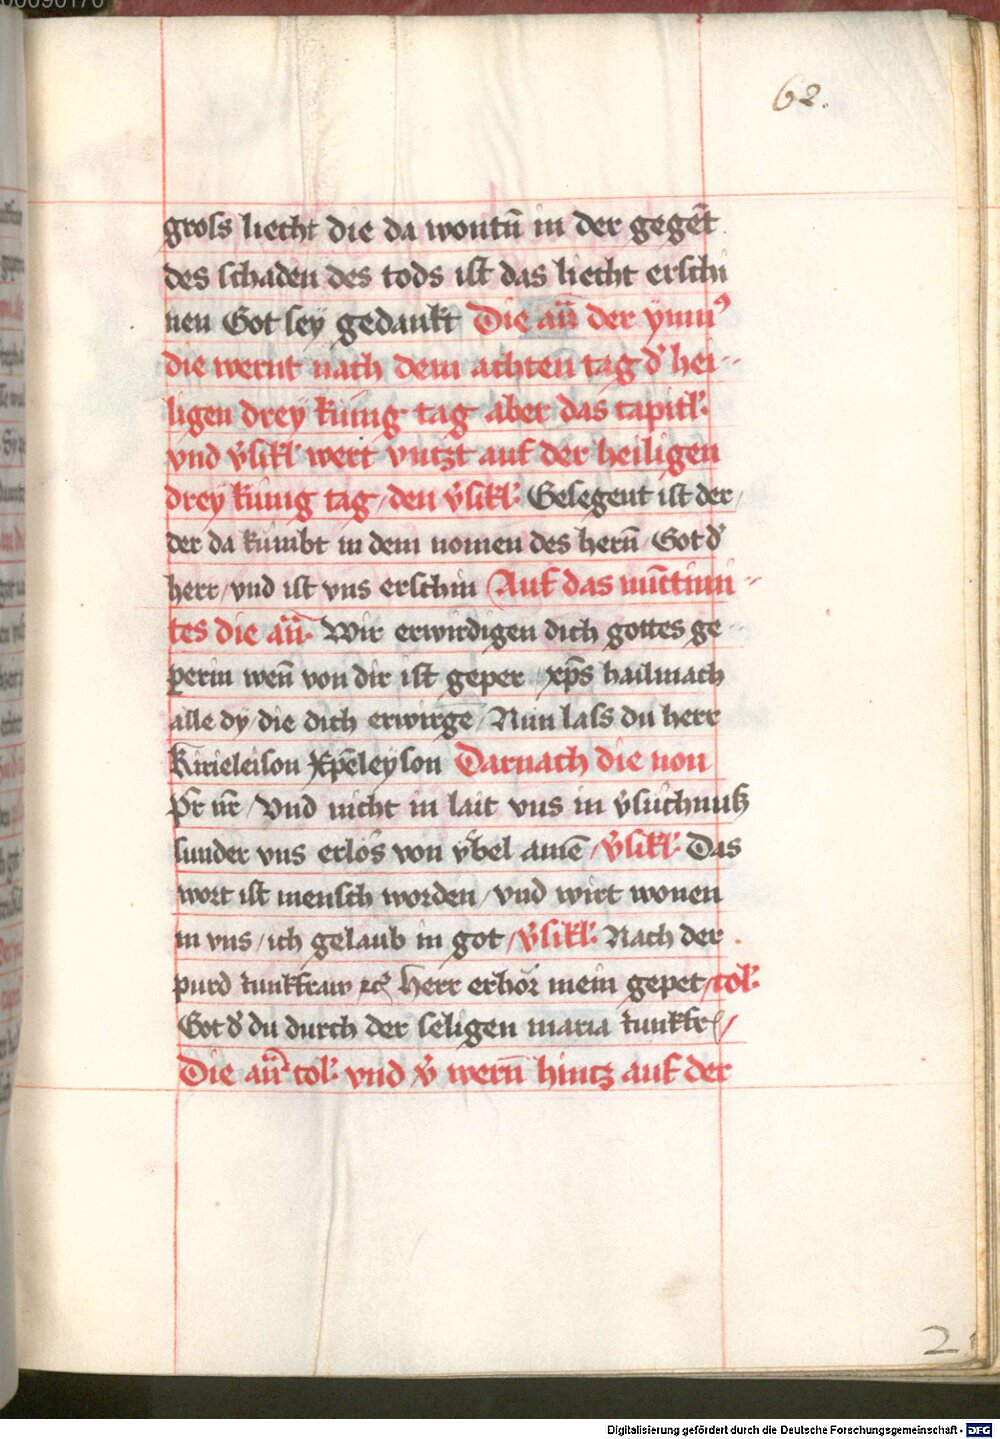 00090170
62.
gross liecht die da wontn̄ in der gegēt
des schaden des tods ist das liecht erschi
nen Got sey gedankt Die an̄ der ymn⁹
die wernt nach dem achten tag d' hei-
ligen drey kunig tag aber das capitl'
vnd v̓sikl' wert vntzt auf der heiligen
drey kunig tag / den v̓sikl' Gelegent ist der /
der da kumbt in dem nomen des hern̄ / Got d'
herr / vnd ist vns erschin Auf das nūctimi-
tes die an̄ Wir erwirdigen dich gottes ge
perin wen̄ von dir ist geper xp̄s hailmach
alle dy / die dich erwirge / Nun lass du herr
Kirieleison Xpēleyson Darnach die non
Pr̄ nr̄ / Vnd nicht in lait vns in v̓suchnuß
sunder vns erlos von vbel amē / v̓sikl' Das
wort ist mensch worden / vnd wirt wonen
in vns / ich gelaub in got / v̓sikl' Nach der
purd iunkfraw ꝛc̄ Herr erhör mein gepet / col'
Got d' du durch der seligen maria iunkfr /
Die an̄ col' vnd v̓ wern̄ hintz auf der
2
Digitalisierung gefördert durch die Deutsche Forschungsgemeinschaft - DFG